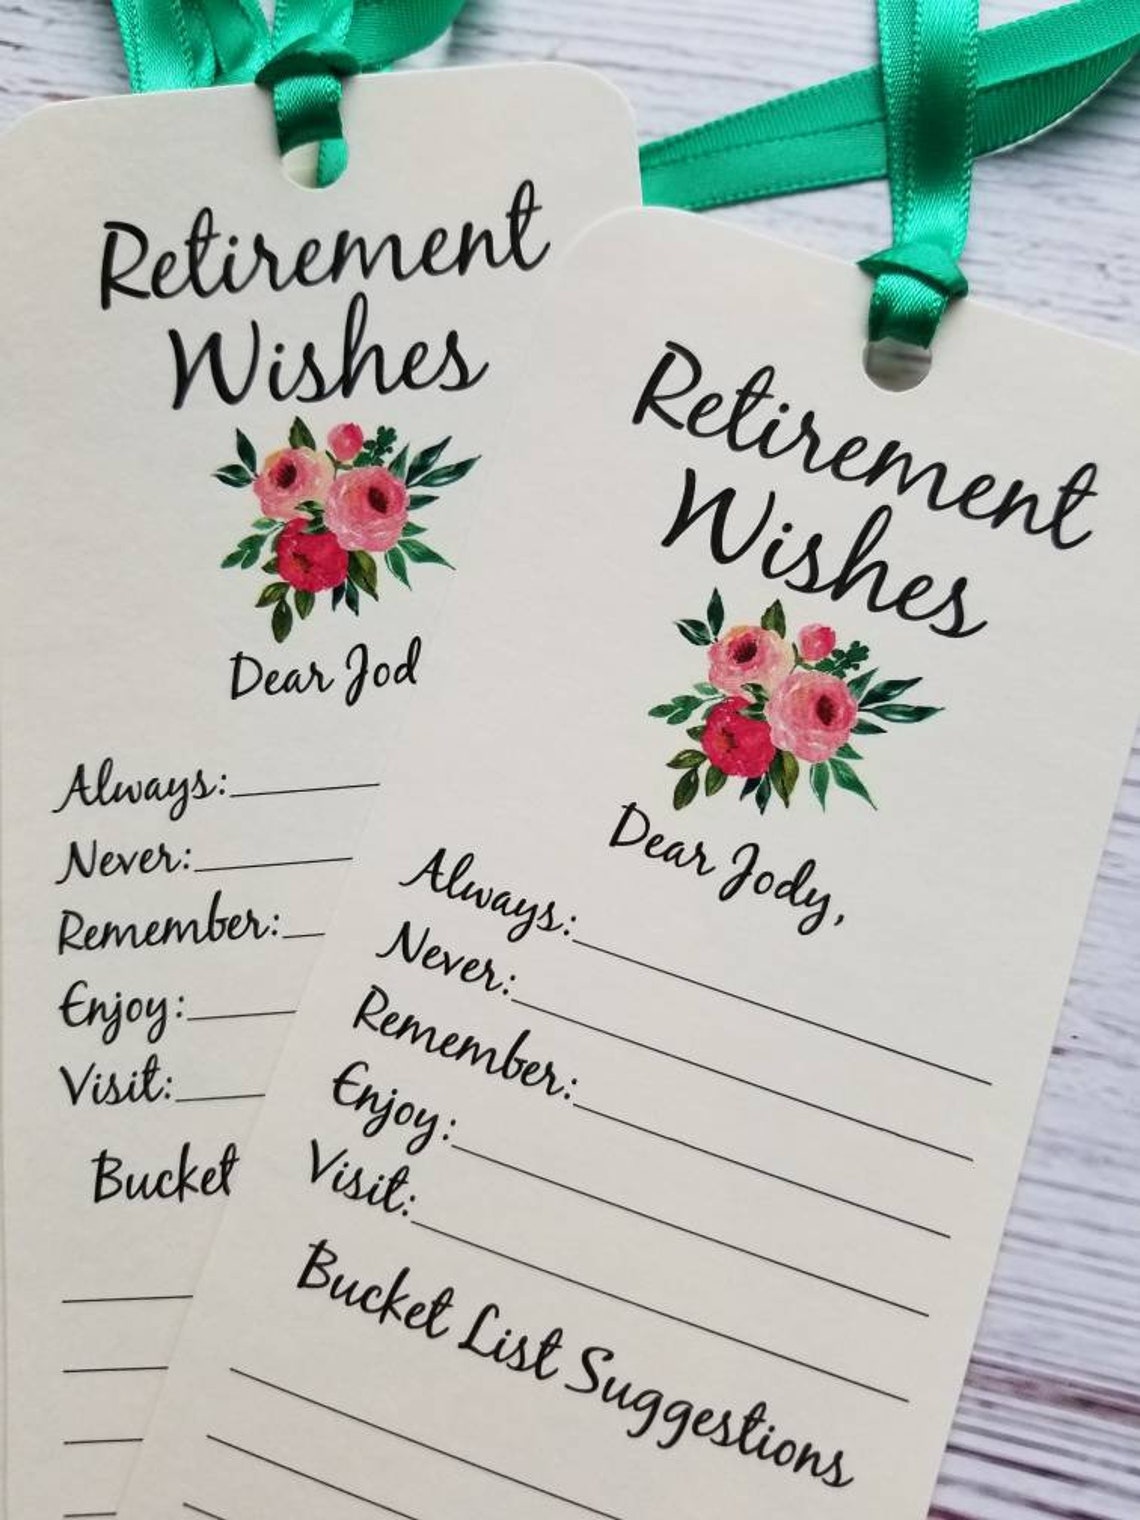 Retirement
Wishes
Dear Jod
Always:
Never:
Remember:
Enjoy:
Visit:
Bucket
Retirement
Wishes
Dear Jody,
Always:
Never:
Remember:
Enjoy:
Visit:
Bucket List Suggestions